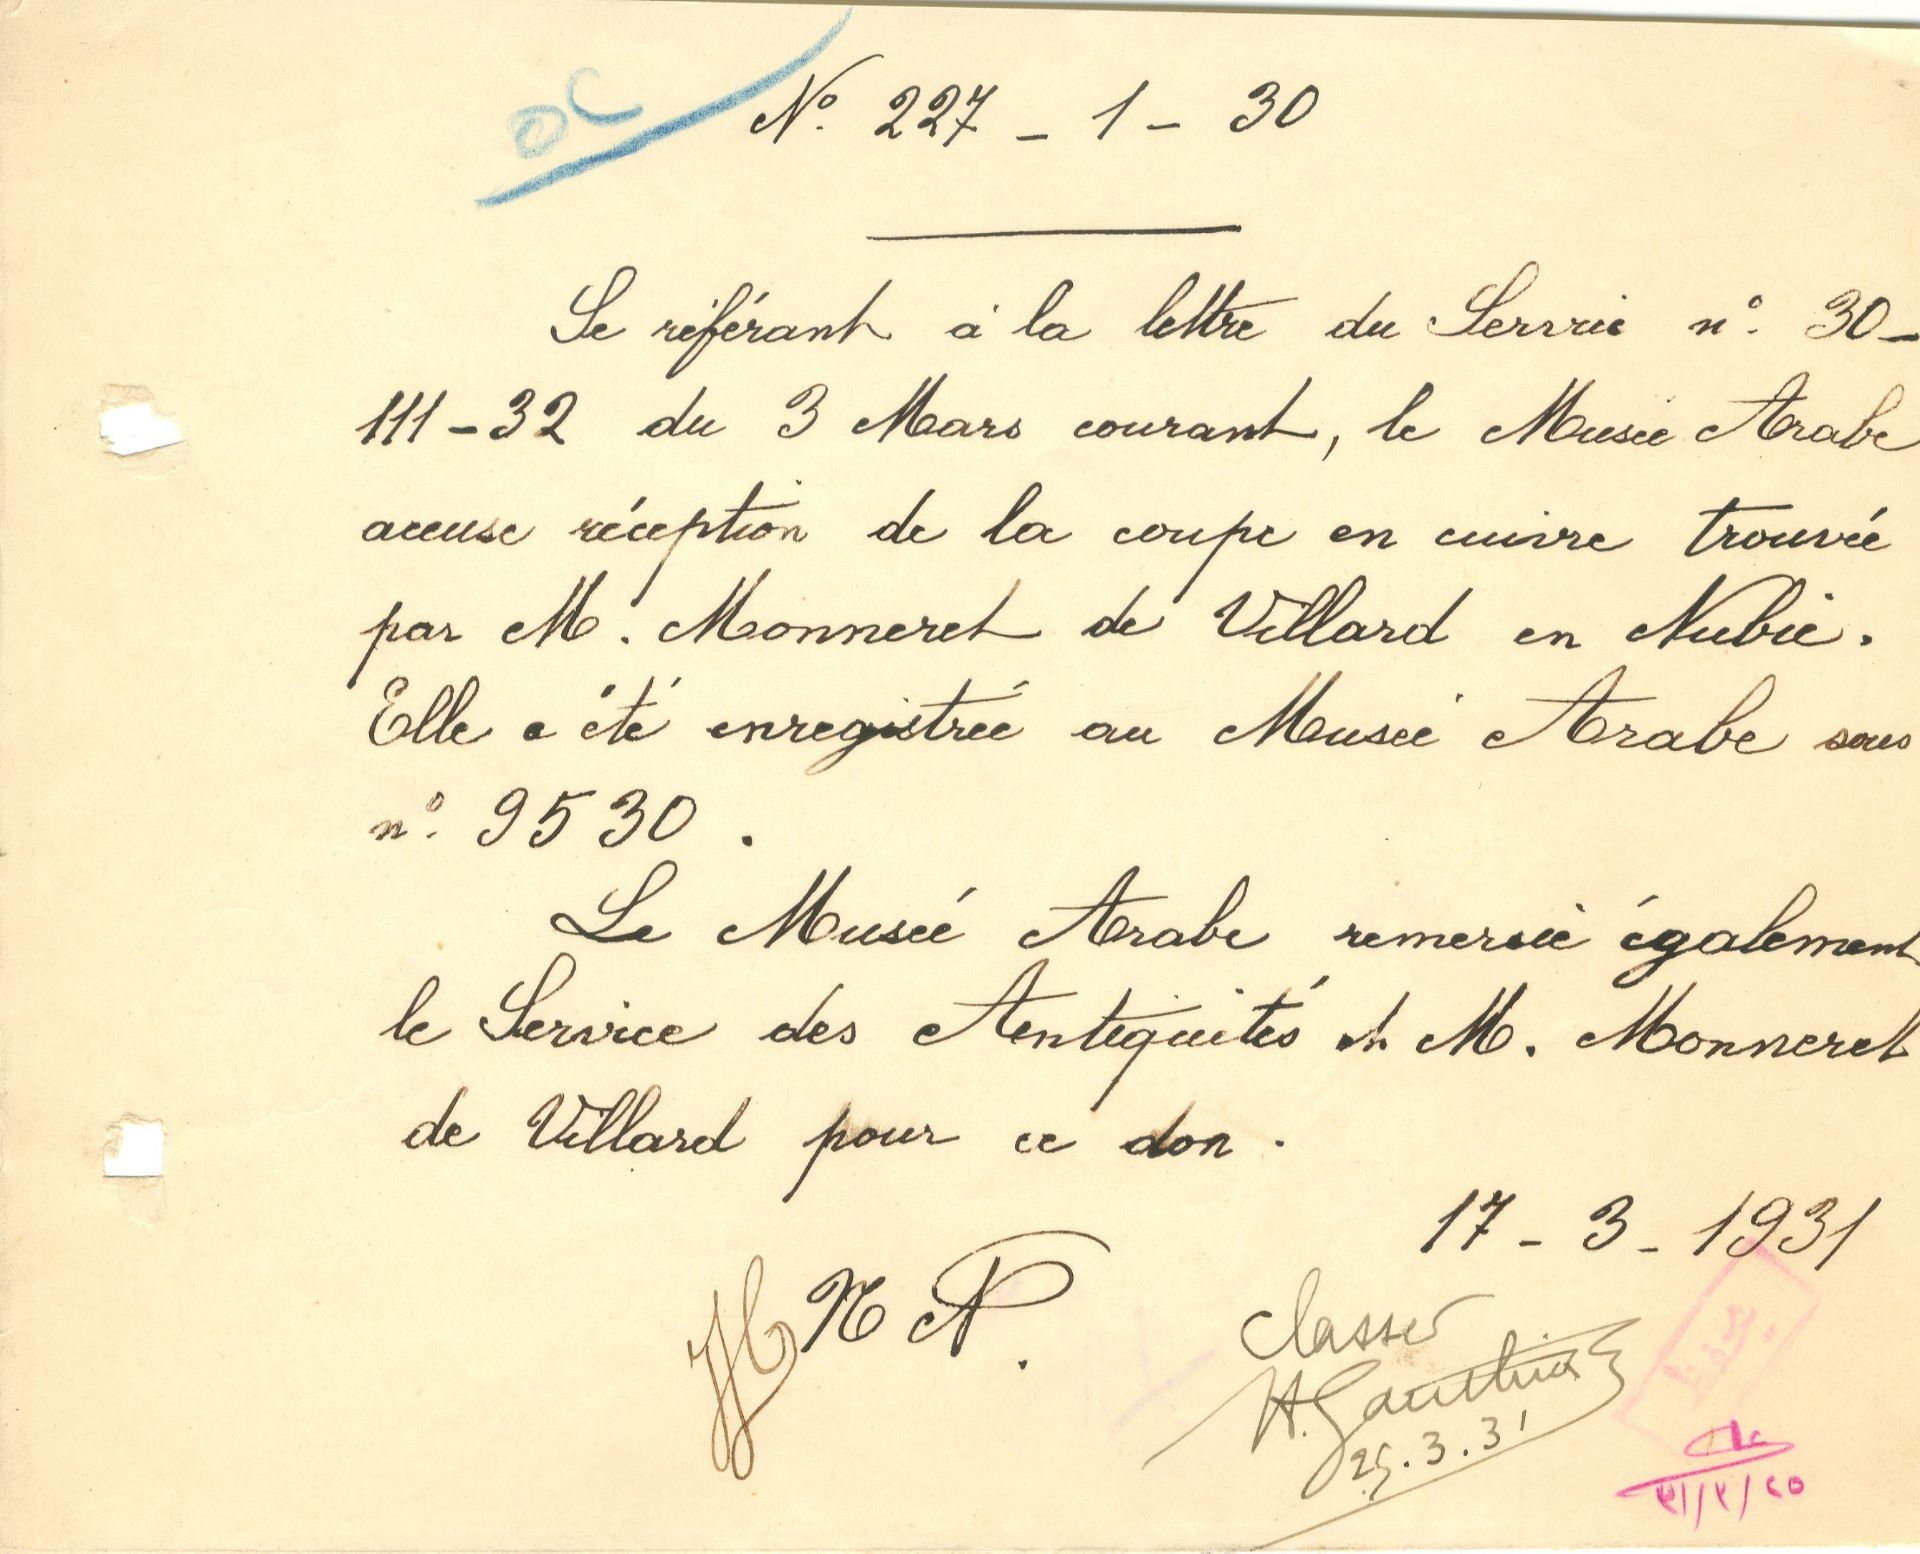 N°. 227 - 1 - 30
Se référant à la lettre du Service n°. 30-
111-32 du 3 Mars courant, le Musée Arabe
accuse réception de la coupe en cuivre trouvée
par M. Monneret de Villard en Nubie.
Elle a été enregistrée au Musée Arabe sous
n°. 9530.
Le Musée Arabe remercie également
le Service des Antiquités et M. Monneret
de Villard pour ce don.
17 - 3 - 1931
Classer
H. Gauthier
25.3.31